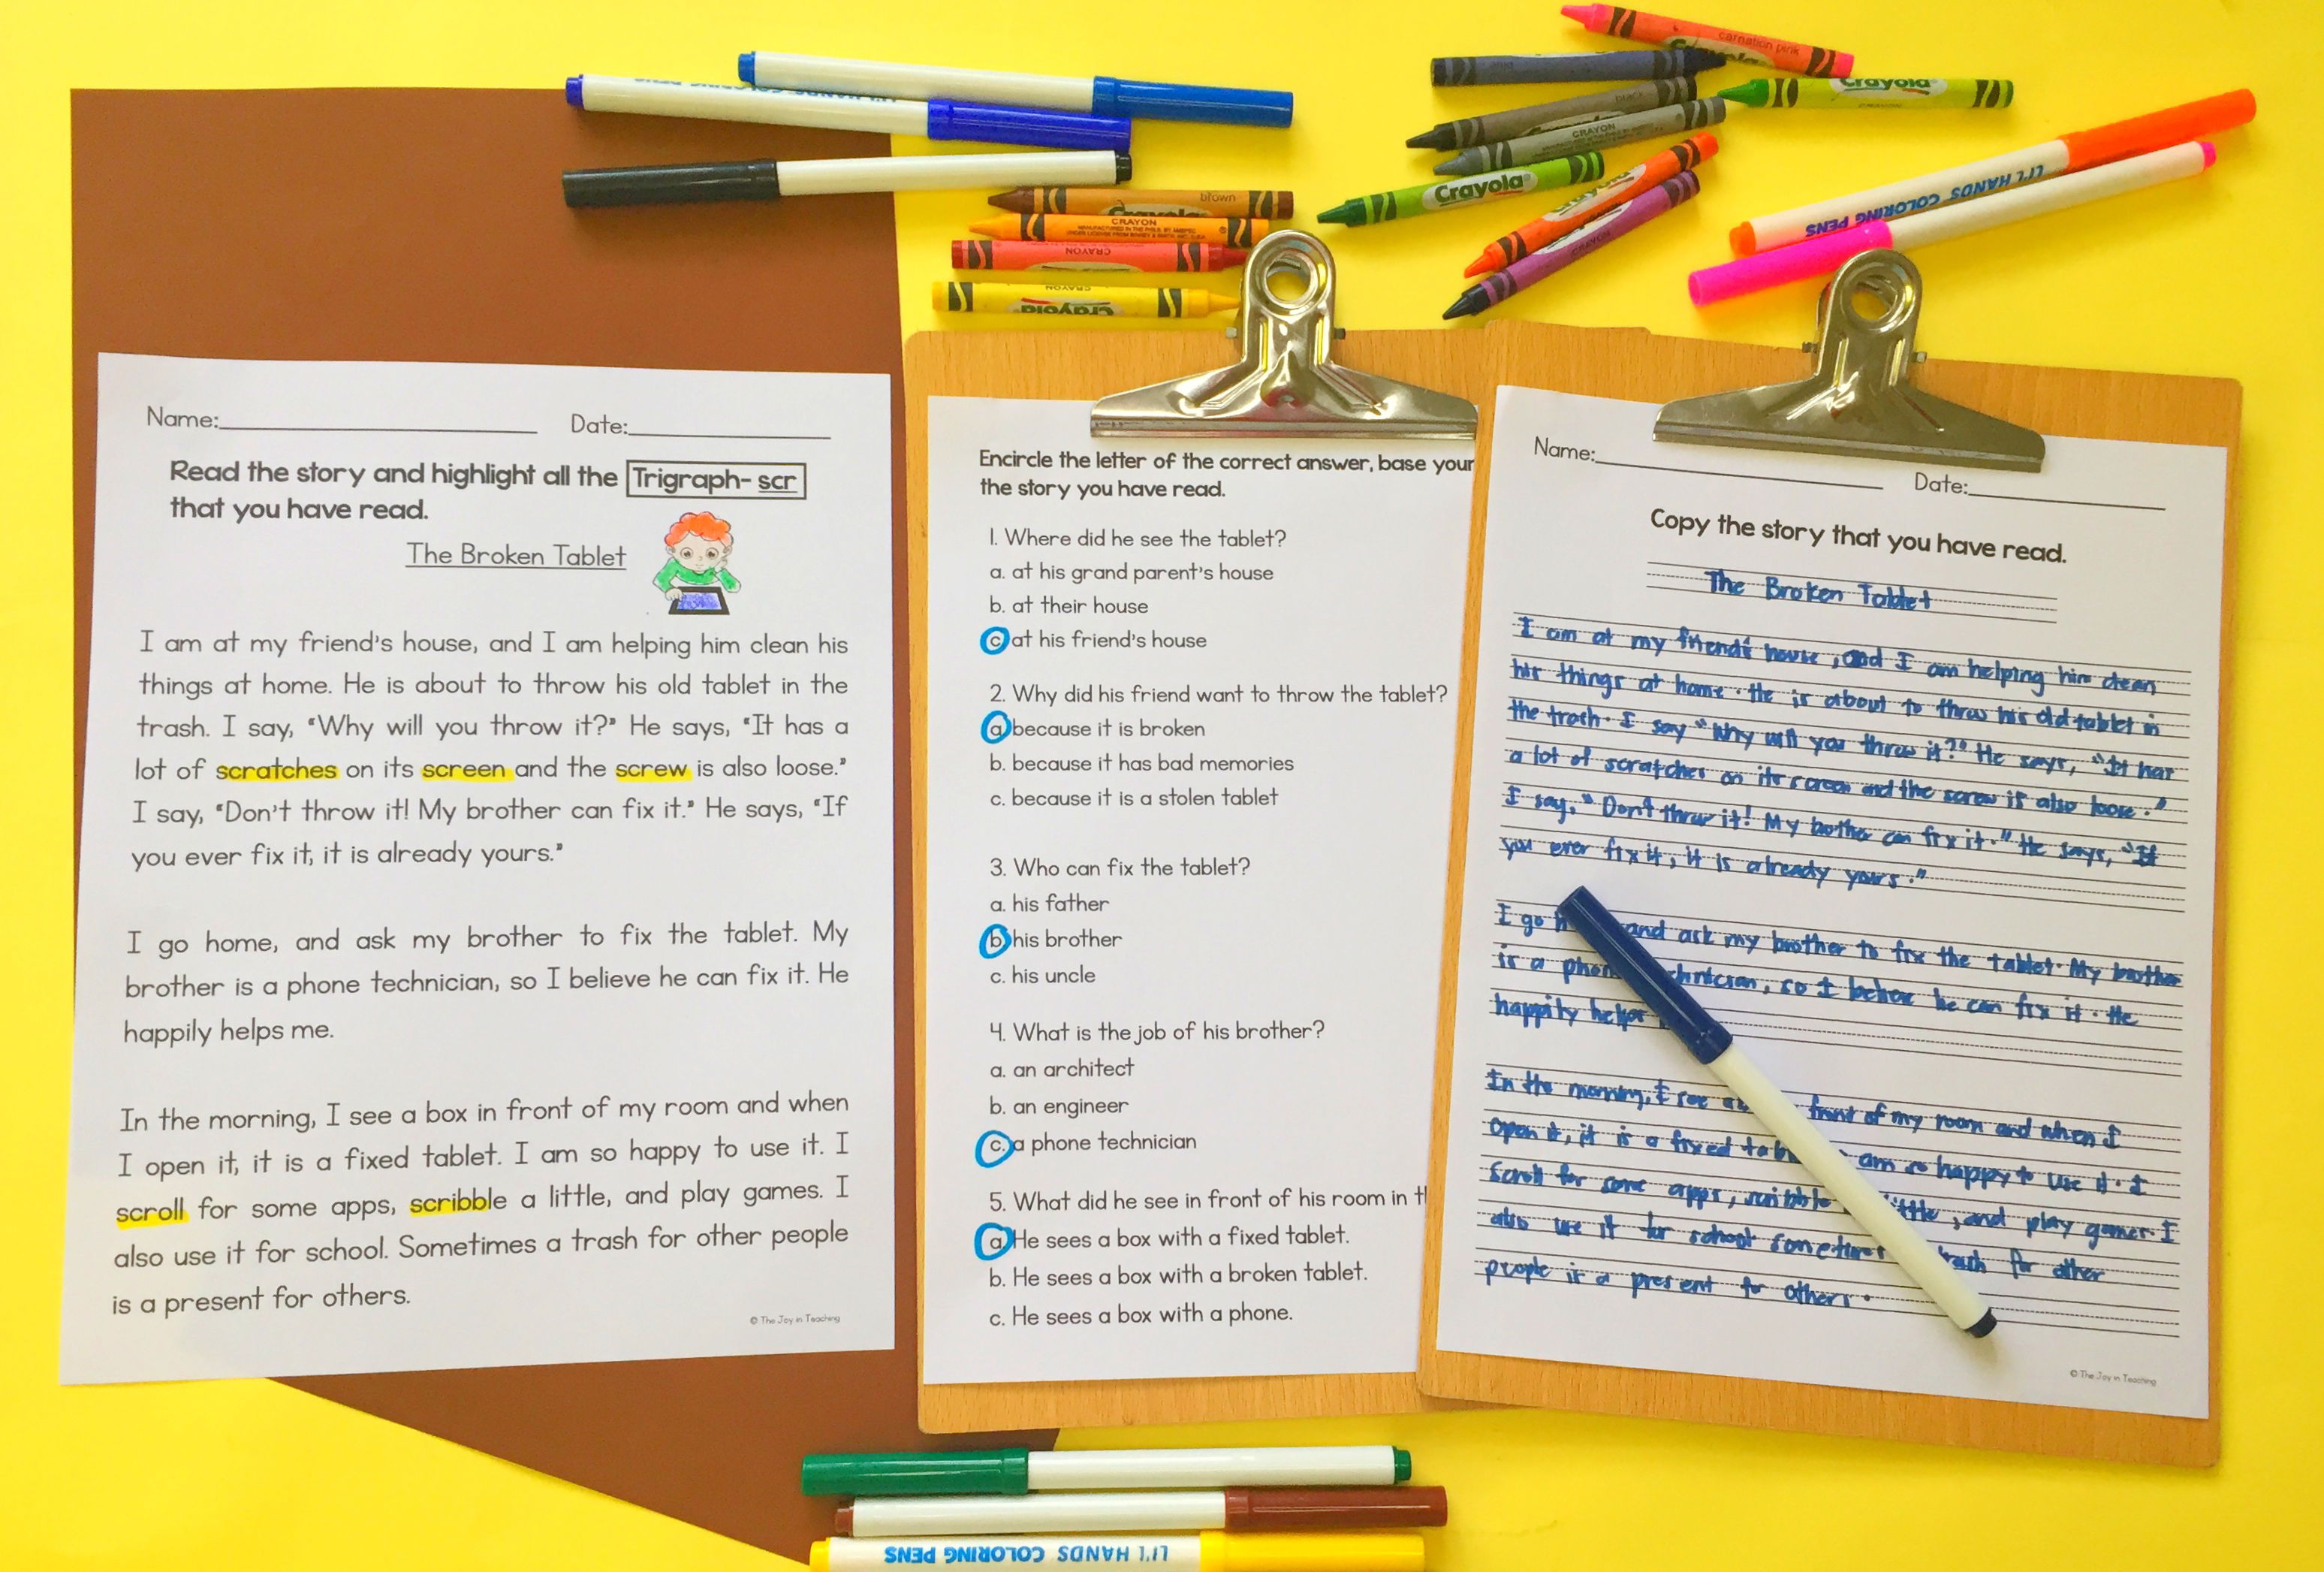 carnation pink
Crayola
black
CRAYON
Crayola
brown
Crayola
CRAYON
CRAYON
CRAYON
CRAYON
Crayola
LI'L HANDS COLORING PENS
Name: Date:
Read the story and highlight all the Trigraph- scr
that you have read.
The Broken Tablet
I am at my friend's house, and I am helping him clean his
things at home. He is about to throw his old tablet in the
trash. I say, "Why will you throw it?" He says, "It has a
lot of scratches on its screen and the screw is also loose."
I say, "Don't throw it! My brother can fix it." He says, "If
you ever fix it, it is already yours."
I go home, and ask my brother to fix the tablet. My
brother is a phone technician, so I believe he can fix it. He
happily helps me.
In the morning, I see a box in front of my room and when
I open it, it is a fixed tablet. I am so happy to use it. I
scroll for some apps, scribble a little, and play games. I
also use it for school. Sometimes a trash for other people
is a present for others.
© The Joy in Teaching
Encircle the letter of the correct answer, base your
the story you have read.
1. Where did he see the tablet?
a. at his grand parent's house
b. at their house
c. at his friend's house
2. Why did his friend want to throw the tablet?
a. because it is broken
b. because it has bad memories
c. because it is a stolen tablet
3. Who can fix the tablet?
a. his father
b. his brother
c. his uncle
4. What is the job of his brother?
a. an architect
b. an engineer
c. a phone technician
5. What did he see in front of his room in
a. He sees a box with a fixed tablet.
b. He sees a box with a broken tablet.
c. He sees a box with a phone.
Name: Date:
Copy the story that you have read.
The Broken Tablet
I am at my friend's house, and I am helping him clean
his things at home. He is about to throw his old tablet in
the trash. I say "Why will you throw it?" He says, "It has
a lot of scratches on its screen and the screw is also loose."
I say, "Don't throw it! My brother can fix it." He says, "If
you ever fix it, it is already yours."
I go and ask my brother to fix the tablet. My brother
is a so I believe he can fix it. He
happily helps
In the morning, I see a front of my room and when I
open it, it is a fixed am so happy to use it. I
scroll for some apps, scribble little, and play games. I
also use it for school sometimes trash for other
people is a present for others.
© The Joy in Teaching
LI'L HANDS COLORING PENS